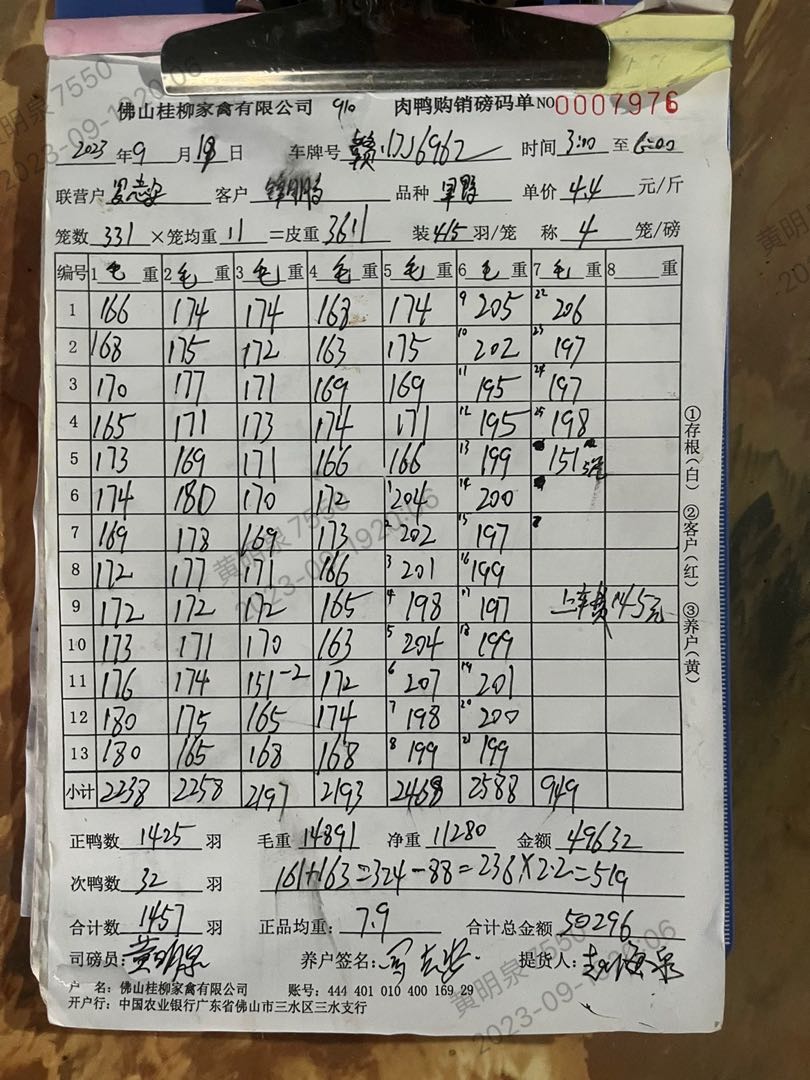 佛山桂柳家禽有限公司 910 肉鸭购销磅码单 NO 0007976
2023 年 9 月 18 日 车牌号 赣 1J6962 时间 3:00 至 6:00
联营户 客户 品种 单价 4.4 元/斤
笼数 331 ×笼均重 11 =皮重 3611 装 4/5 羽/笼 称 4 笼/磅
编号 1 毛 重 2 毛 重 3 毛 重 4 毛 重 5 毛 重 6 毛 重 7 毛 重 8 重
1 166 174 174 168 174 9 205 22 206
2 168 175 172 163 175 10 202 23 197
3 170 177 171 169 169 11 195 24 197
4 165 171 173 174 171 12 195 25 198
5 173 169 171 166 166 13 199 151
6 174 180 170 172 1 204 14 200
7 169 178 169 173 2 202 15 197
8 172 177 171 166 3 201 16 199
9 172 172 172 165 4 198 17 197 上车费145元
10 173 171 170 163 5 204 18 199
11 176 174 151-2 172 6 207 19 201
12 180 175 165 174 7 198 20 200
13 180 165 168 168 8 199 21 199
小计 2238 2258 2197 2193 2468 2588 949
正鸭数 1425 羽 毛重 14891 净重 11280 金额 49632
次鸭数 32 羽 161+163=324-88=236×2.2=519
合计数 1457 羽 正品均重: 7.9 合计总金额 50296
司磅员: 黄明泉 养户签名: 提货人:
户 名: 佛山桂柳家禽有限公司 账号: 444 401 010 400 169 29
开户行: 中国农业银行广东省佛山市三水区三水支行
①存根(白) ②客户(红) ③养户(黄)
黄明泉 7550
2023-09-19 20:06